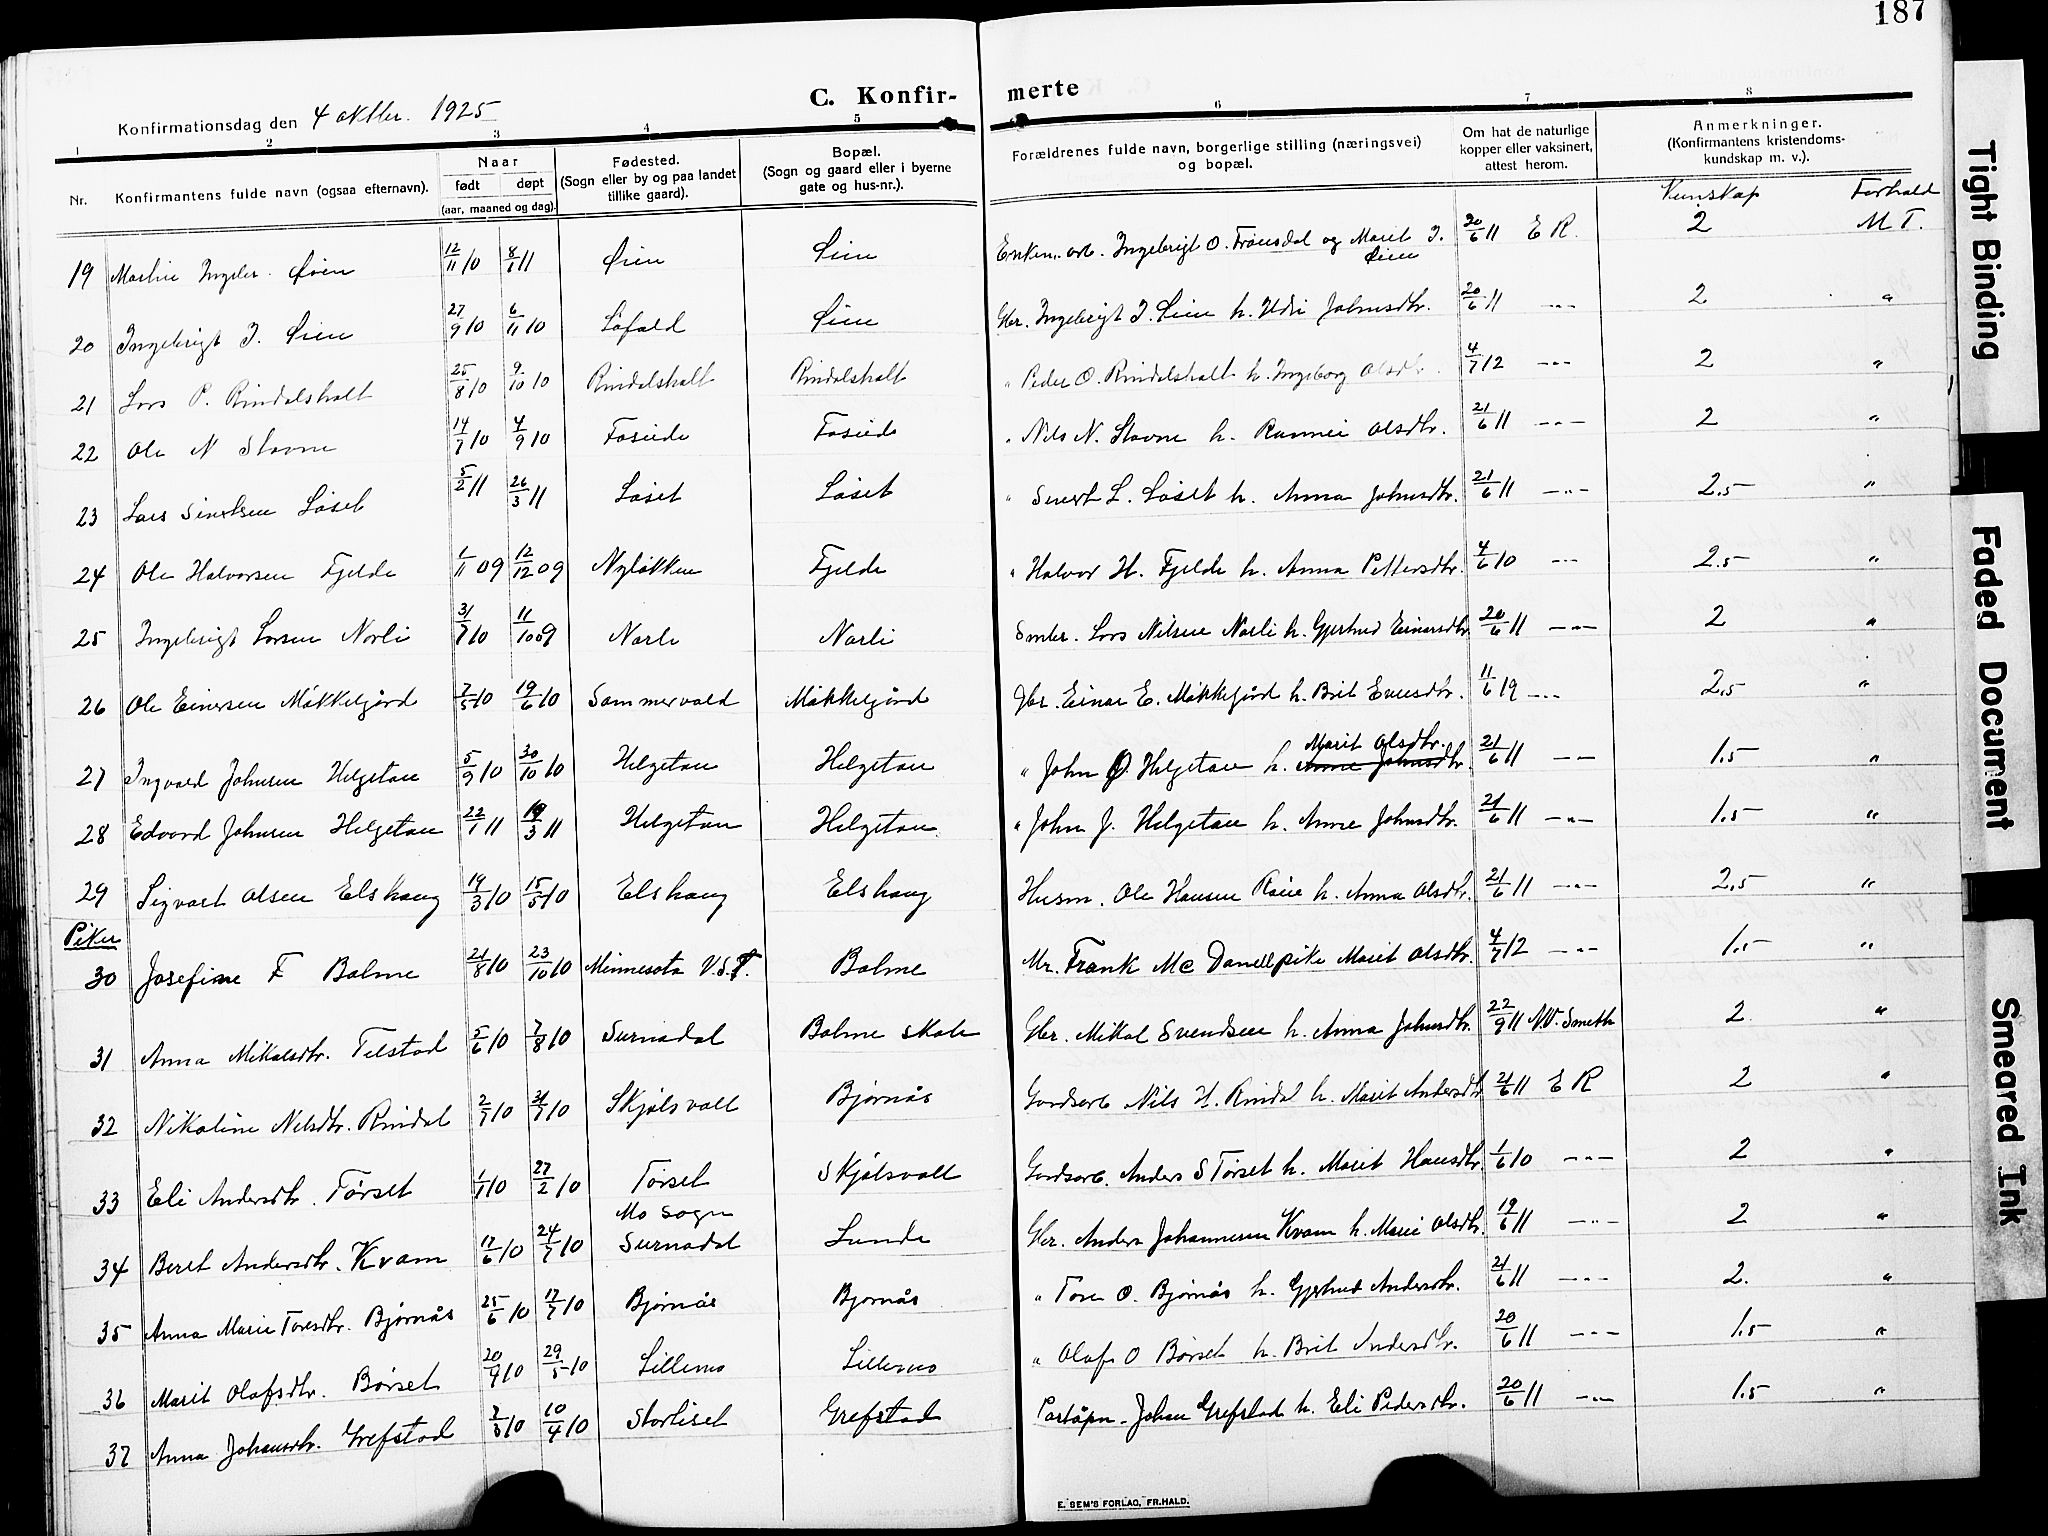 187
C. Konfir- merte
Konfirmationsdag den 4 oktbr. 1925
1 2 3 4 5 6 7 8
Nr. Konfirmantens fulde navn (ogsaa efternavn). Naar født døpt (aar, maaned og dag). Fødested. (Sogn eller by og paa landet tillike gaard). Bopæl. (Sogn og gaard eller i byerne gate og hus-nr.). Forældrenes fulde navn, borgerlige stilling (næringsvei) og bopæl. Om hat de naturlige kopper eller vaksinert, attest herom. Anmerkninger. (Konfirmantens kristendoms-kundskap m. v.).
Kunskap Forhald
19 Martin Ingebr. Øien 12/11 10 8/1 11 Øien Øien Enkem. arb. Ingebrigt O. Trönsdal og Marit J. Øien 20/6 11 E R. 2 M T.
20 Ingebrigt I. Øien 27/9 10 6/11 10 Löfald Øien Gbr. Ingebrigt J. Øien h. Johnsdtr. 20/6 11 -"- 2 "
21 Lars P. Rindalsholt 25/8 10 9/10 10 Rindalsholt Rindalsholt " Peder O. Rindalsholt h. Ingeborg Olsdtr. 4/7 12 -"- 2 "
22 Ole N Stavne 14/7 10 4/9 10 Foseide Foseide " Nils N. Stavne h. Rannei Olsdtr. 21/6 11 -"- 2 "
23 Lars Sivertsen Løset 5/2 11 26/3 11 Løset Løset " Sivert L. Løset h. Anna Johnsdtr. 21/6 11 -"- 2.5 "
24 Ole Halvorsen Fjelde 1/11 09 12/12 09 Nyløkken Fjelde " Halvor H. Fjelde h. Anna Pettersdtr. 4/6 10 -"- 2.5 "
25 Ingebrigt Larsen Norli 31/7 10 11/10 09 Norli Norli Smbr. Lars Nilsen Norli h. Gjertrud Einarsdtr. 20/6 11 -"- 2 "
26 Ole Einersen Måkkelgård 7/5 10 19/6 10 Sommervold Måkkelgård Gbr. Einar E. Måkkelgård h. Brit Evensdtr. 11/6 19 -"- 2.5 "
27 Ingvald Johnsen Helgetun 5/9 10 30/10 10 Helgetun Helgetun " John O. Helgetun h. Marit Olsdtr. Anne Johnsdtr 21/6 11 -"- 1.5 "
28 Edvard Johnsen Helgetun 22/1 11 19/3 11 Helgetun Helgetun " John J. Helgetun h. Anne Johnsdtr. 21/6 11 -"- 1.5 "
29 Sigvart Olsen Elshaug 19/3 10 15/5 10 Elshaug Elshaug Husm. Ole Hansen h. Anna Olsdtr. 21/6 11 -"- 2.5 "
Piker
30 Josefine F Bolme 21/8 10 23/10 10 Minnesota U.S.A. Bolme Mr. Frank Mc Danell pike Marit Olsdtr. 4/7 12 -"- 1.5 "
31 Anna Mikalsdtr. Telstad 5/6 10 7/8 10 Surnadal Bolme skole Gbr. Mikal Svendsen h. Anna Johnsdtr. 22/9 11 N.V. Smeth 2. "
32 Nikoline Nilsdtr. Rindal 2/7 10 31/7 10 Skjølsvoll Bjørnås Gardsarb Nils H. Rindal h. Marit Andersdtr 21/6 11 E R 2 "
33 Eli Andersdtr. Tørset 1/1 10 27/2 10 Tørset Skjølsvoll Gardsarb. Anders S Tørset h. Marit Hansdtr 1/6 10 -"- 2 "
34 Beret Andersdtr. Kvam 17/6 10 24/7 10 Mo sogn Surnadal Lunde Gbr. Anders Johannesen Kvam h. Marie Olsdtr. 19/6 11 -"- 2 "
35 Anna Marie Toresdtr. Bjørnås 25/6 10 17/7 10 Bjørnås Bjørnås " Tore O. Bjørnås h. Gjertrud Andersdtr. 21/6 11 -"- 2. "
36 Marit Olafsdtr. Börset 20/4 10 29/5 10 Lillemo Lillemo " Olaf O Börset h. Brit Andersdtr. 20/6 11 -"- 1.5 "
37 Anna Johansdtr. Grefstad 2/3 10 10/4 10 Storliset Grefstad Poståpn. Johan Grefstad h. Eli Pedersdtr. 20/6 11 -"- 1.5 "
E. SEM'S FORLAG, FR.HALD.
Tight Binding
Faded Document
Smeared Ink